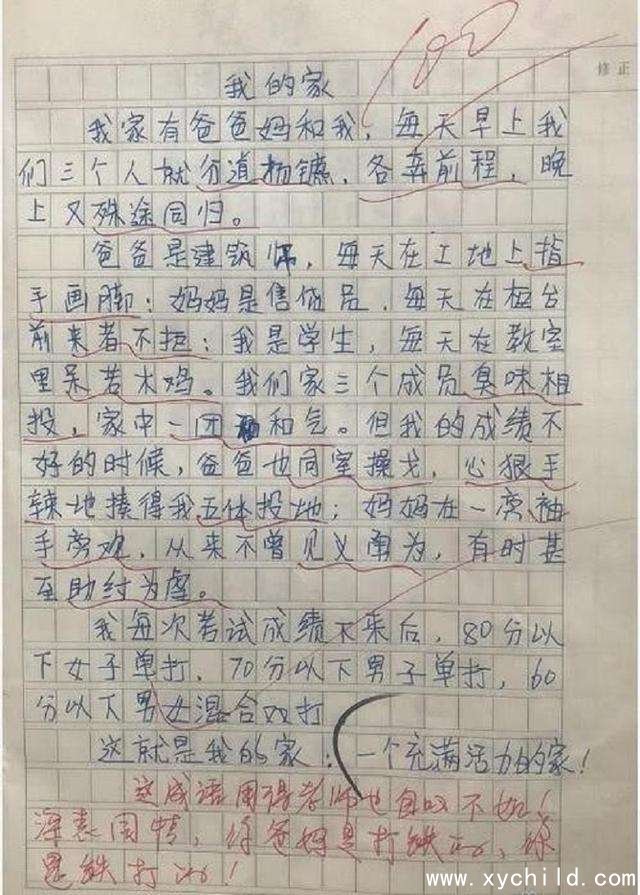 100
修正
我的家
我家有爸爸妈和我，每天早上我
们三个人就分道扬镳，各奔前程，晚
上又殊途同归。
爸爸是建筑师，每天在工地上指
手画脚；妈妈是售货员，每天在柜台
前来者不拒；我是学生，每天在教室
里呆若木鸡。我们家三个成员臭味相
投，家中一团和气。但我的成绩不
好的时候，爸爸也同室操戈，心狠手
辣地揍得我五体投地；妈妈在一旁袖
手旁观，从来不曾见义勇为，有时甚
至助纣为虐。
我每次考试成绩下来后，80分以
下女子单打，70分以下男子单打，60
分以下男女混合双打
这就是我的家：一个充满活力的家！
这成语用得老师也自叹不如！
深表同情，你爸妈是打铁的，你
是铁打的！
www.xychild.com